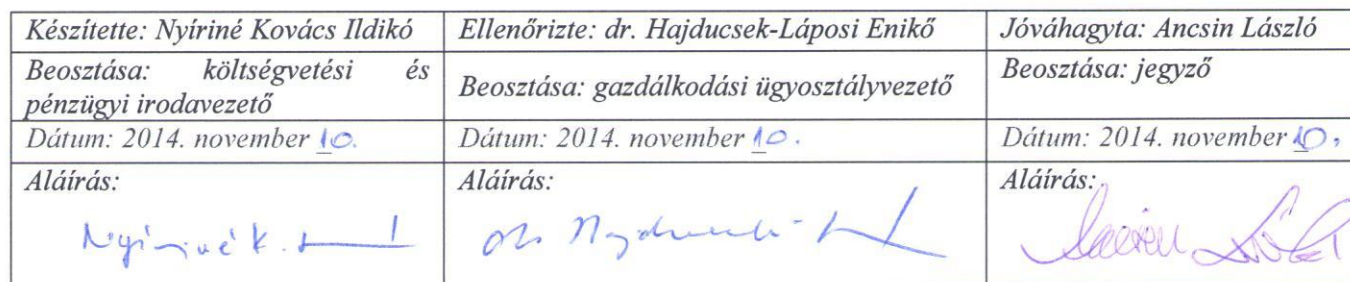 Készítette: Nyíriné Kovács Ildikó
Ellenőrizte: dr. Hajducsek-Láposi Enikő
Jóváhagyta: Ancsin László
Beosztása: költségvetési és
pénzügyi irodavezető
Beosztása: gazdálkodási ügyosztályvezető
Beosztása: jegyző
Dátum: 2014. november 10.
Dátum: 2014. november 10.
Dátum: 2014. november 10.
Aláírás:
Aláírás:
Aláírás:
Nyíriné K.